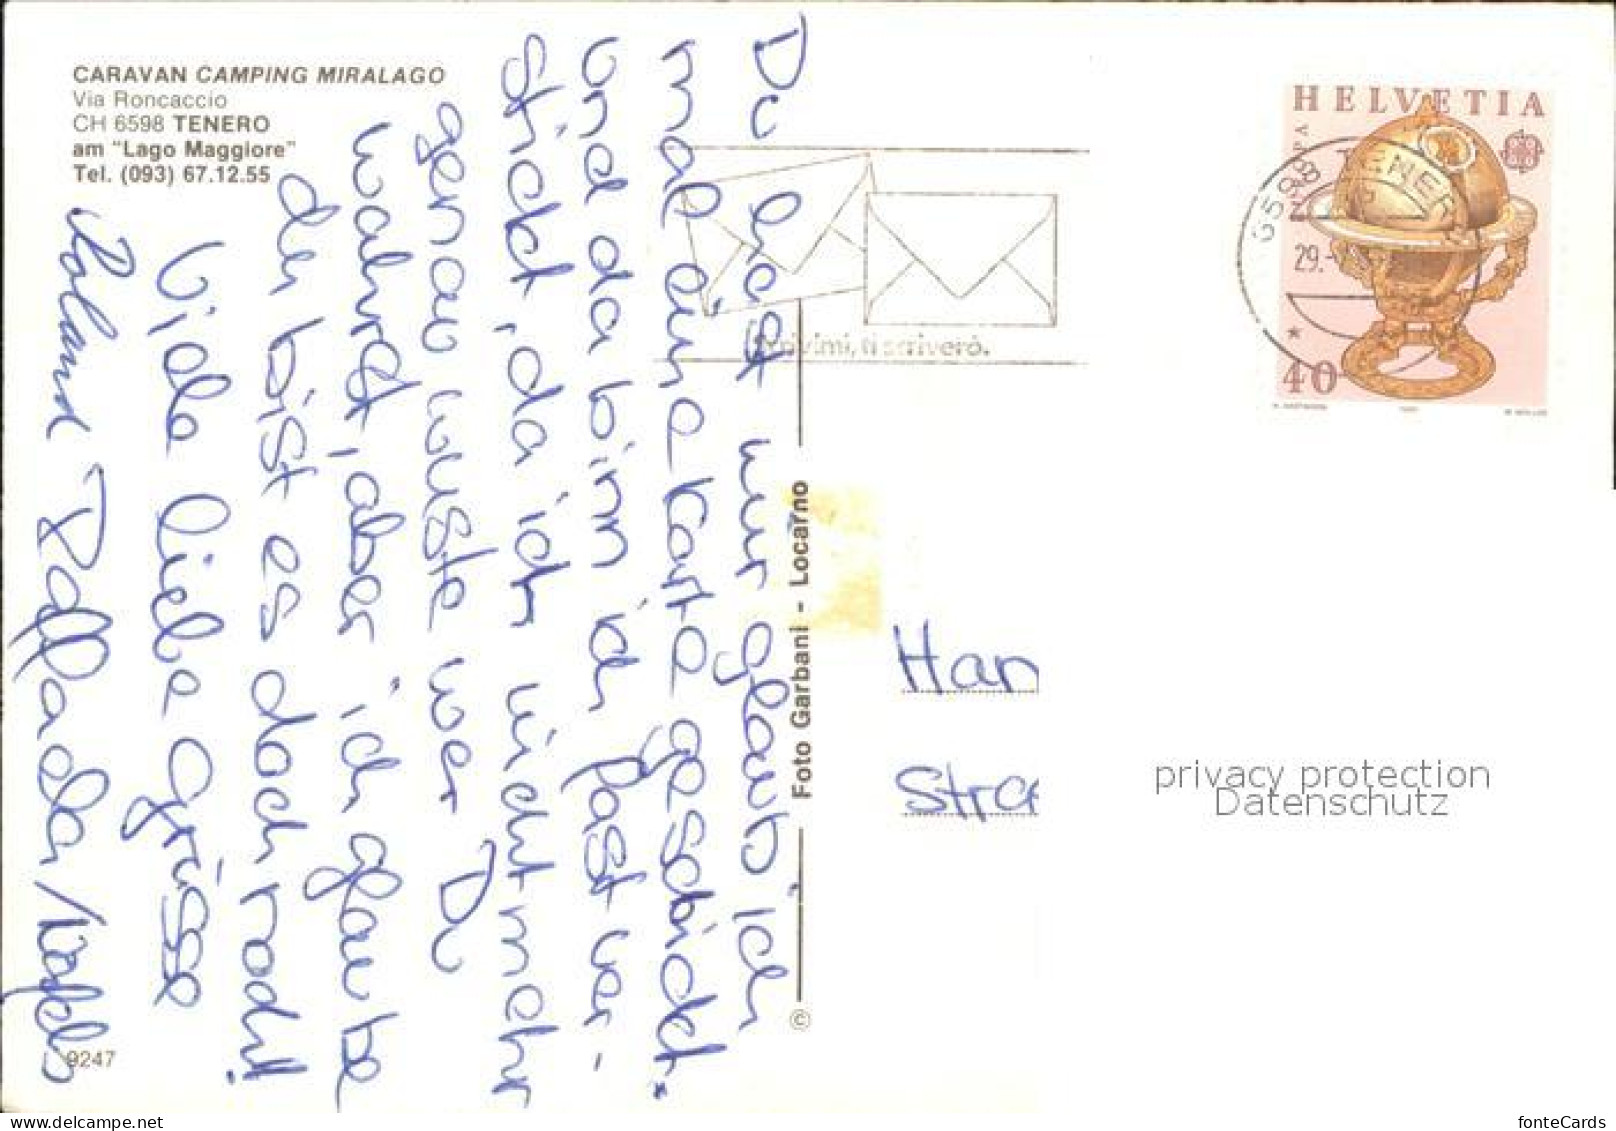 CARAVAN CAMPING MIRALAGO
Via Roncaccio
CH 6598 TENERO
am "Lago Maggiore"
Tel. (093) 67.12.55
Du hast mir glaub ich
mal eine karte geschickt.
Und da binn ich fast ver-
stickt, da ich nicht mehr
genau wuste wer Du
wahrst, aber ich glaube
du bist es doch noch!
Viele liebe Grüsse
Roland
9247
© Foto Garbani - Locarno
Scrivimi, ti scriverò.
HELVETIA
EUROPA
40
6598 TENERO
29.
Han
Stra
privacy protection
Datenschutz
www.delcampe.net
fonteCards